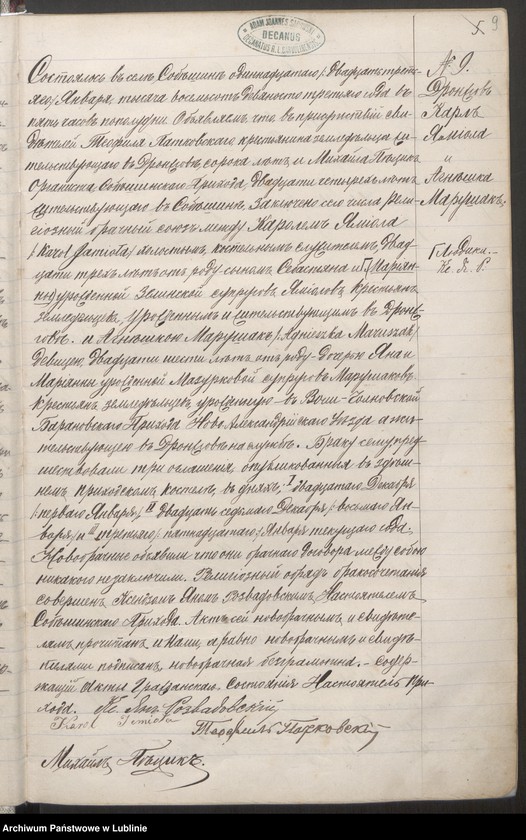 ADAM JOANNES
DECANUS
5. 9
№ 9.
Дронцовъ
Кароль
Яміола
и
Агнѣшка
Марушакъ
Состоялось въ селѣ Собѣшинъ одиннадцатаго /: двадцать треть-
яго :/ Января, тысяча восемьсотъ девяносто третьяго года въ
пять часовъ пополудни. Объявляемъ что въ присутствіи сви-
дѣтелей Теофиля Патковскаго крестьянина земледѣльца жи-
тельствующаго въ Дронцовѣ сорока лѣтъ и Михайла Пѣцикъ
Органиста Собѣшинскаго прихода двадцати четырехъ лѣтъ
жительствующаго въ Собѣшинѣ, заключено сего числа рели-
гіозный брачный союзъ между Каролемъ Яміола
/: Karol Jamioła :/ холостымъ, костельнымъ служителемъ, двад-
цати трехъ лѣтъ отъ роду сыномъ Севастьяна и Маріян-
ны урожденной Зелинской супруговъ Яміоловъ крестьянъ
земледѣльцевъ, урожденнымъ и жительствующимъ въ Дронц-
говѣ. и Агнѣшкою Марушакъ /: Agnieszka Maruszak :/
дѣвицею, двадцати шести лѣтъ отъ роду дочерью Яна и
Маріанны урожденной Мазурковой супруговъ Марушаковъ
крестьянъ земледѣльцевъ, урожденною въ Воли-
Барановскаго прихода Ново-Александрійскаго уѣзда а жи-
тельствующею въ Дронцовѣ на службѣ. Браку сему пред-
шествовали три оглашенія, опубликованныя въ здѣш-
немъ приходскомъ костелѣ, въ дняхъ, I двадцатаго Декабря
/: перваго Января :/ II двадцать седьмаго Декабря /: восьмаго Ян-
варя :/ и III третьяго /: пятнадцатаго :/ Января текущаго года.
Новобрачные объявили что они брачнаго договора между собою
никакого не заключили. Религіозный обрядъ бракосочетанія
совершенъ Ксендзомъ Яномъ Розвадовскимъ Настоятелемъ
Собѣшинскаго прихода. Актъ сей новобрачнымъ и свидѣте-
лямъ прочитанъ и Нами, а равно новобрачнымъ и свидѣ-
телями подписанъ, новобрачная безграмотна. - Содер-
жащій Акты Гражданскаго Состоянія Настоятель При-
хода. Кс. Янъ Розвадовскій
Karol Jemioła
Теофиль Патковскій
Михайлъ Пѣцикъ.
Archiwum Państwowe w Lublinie